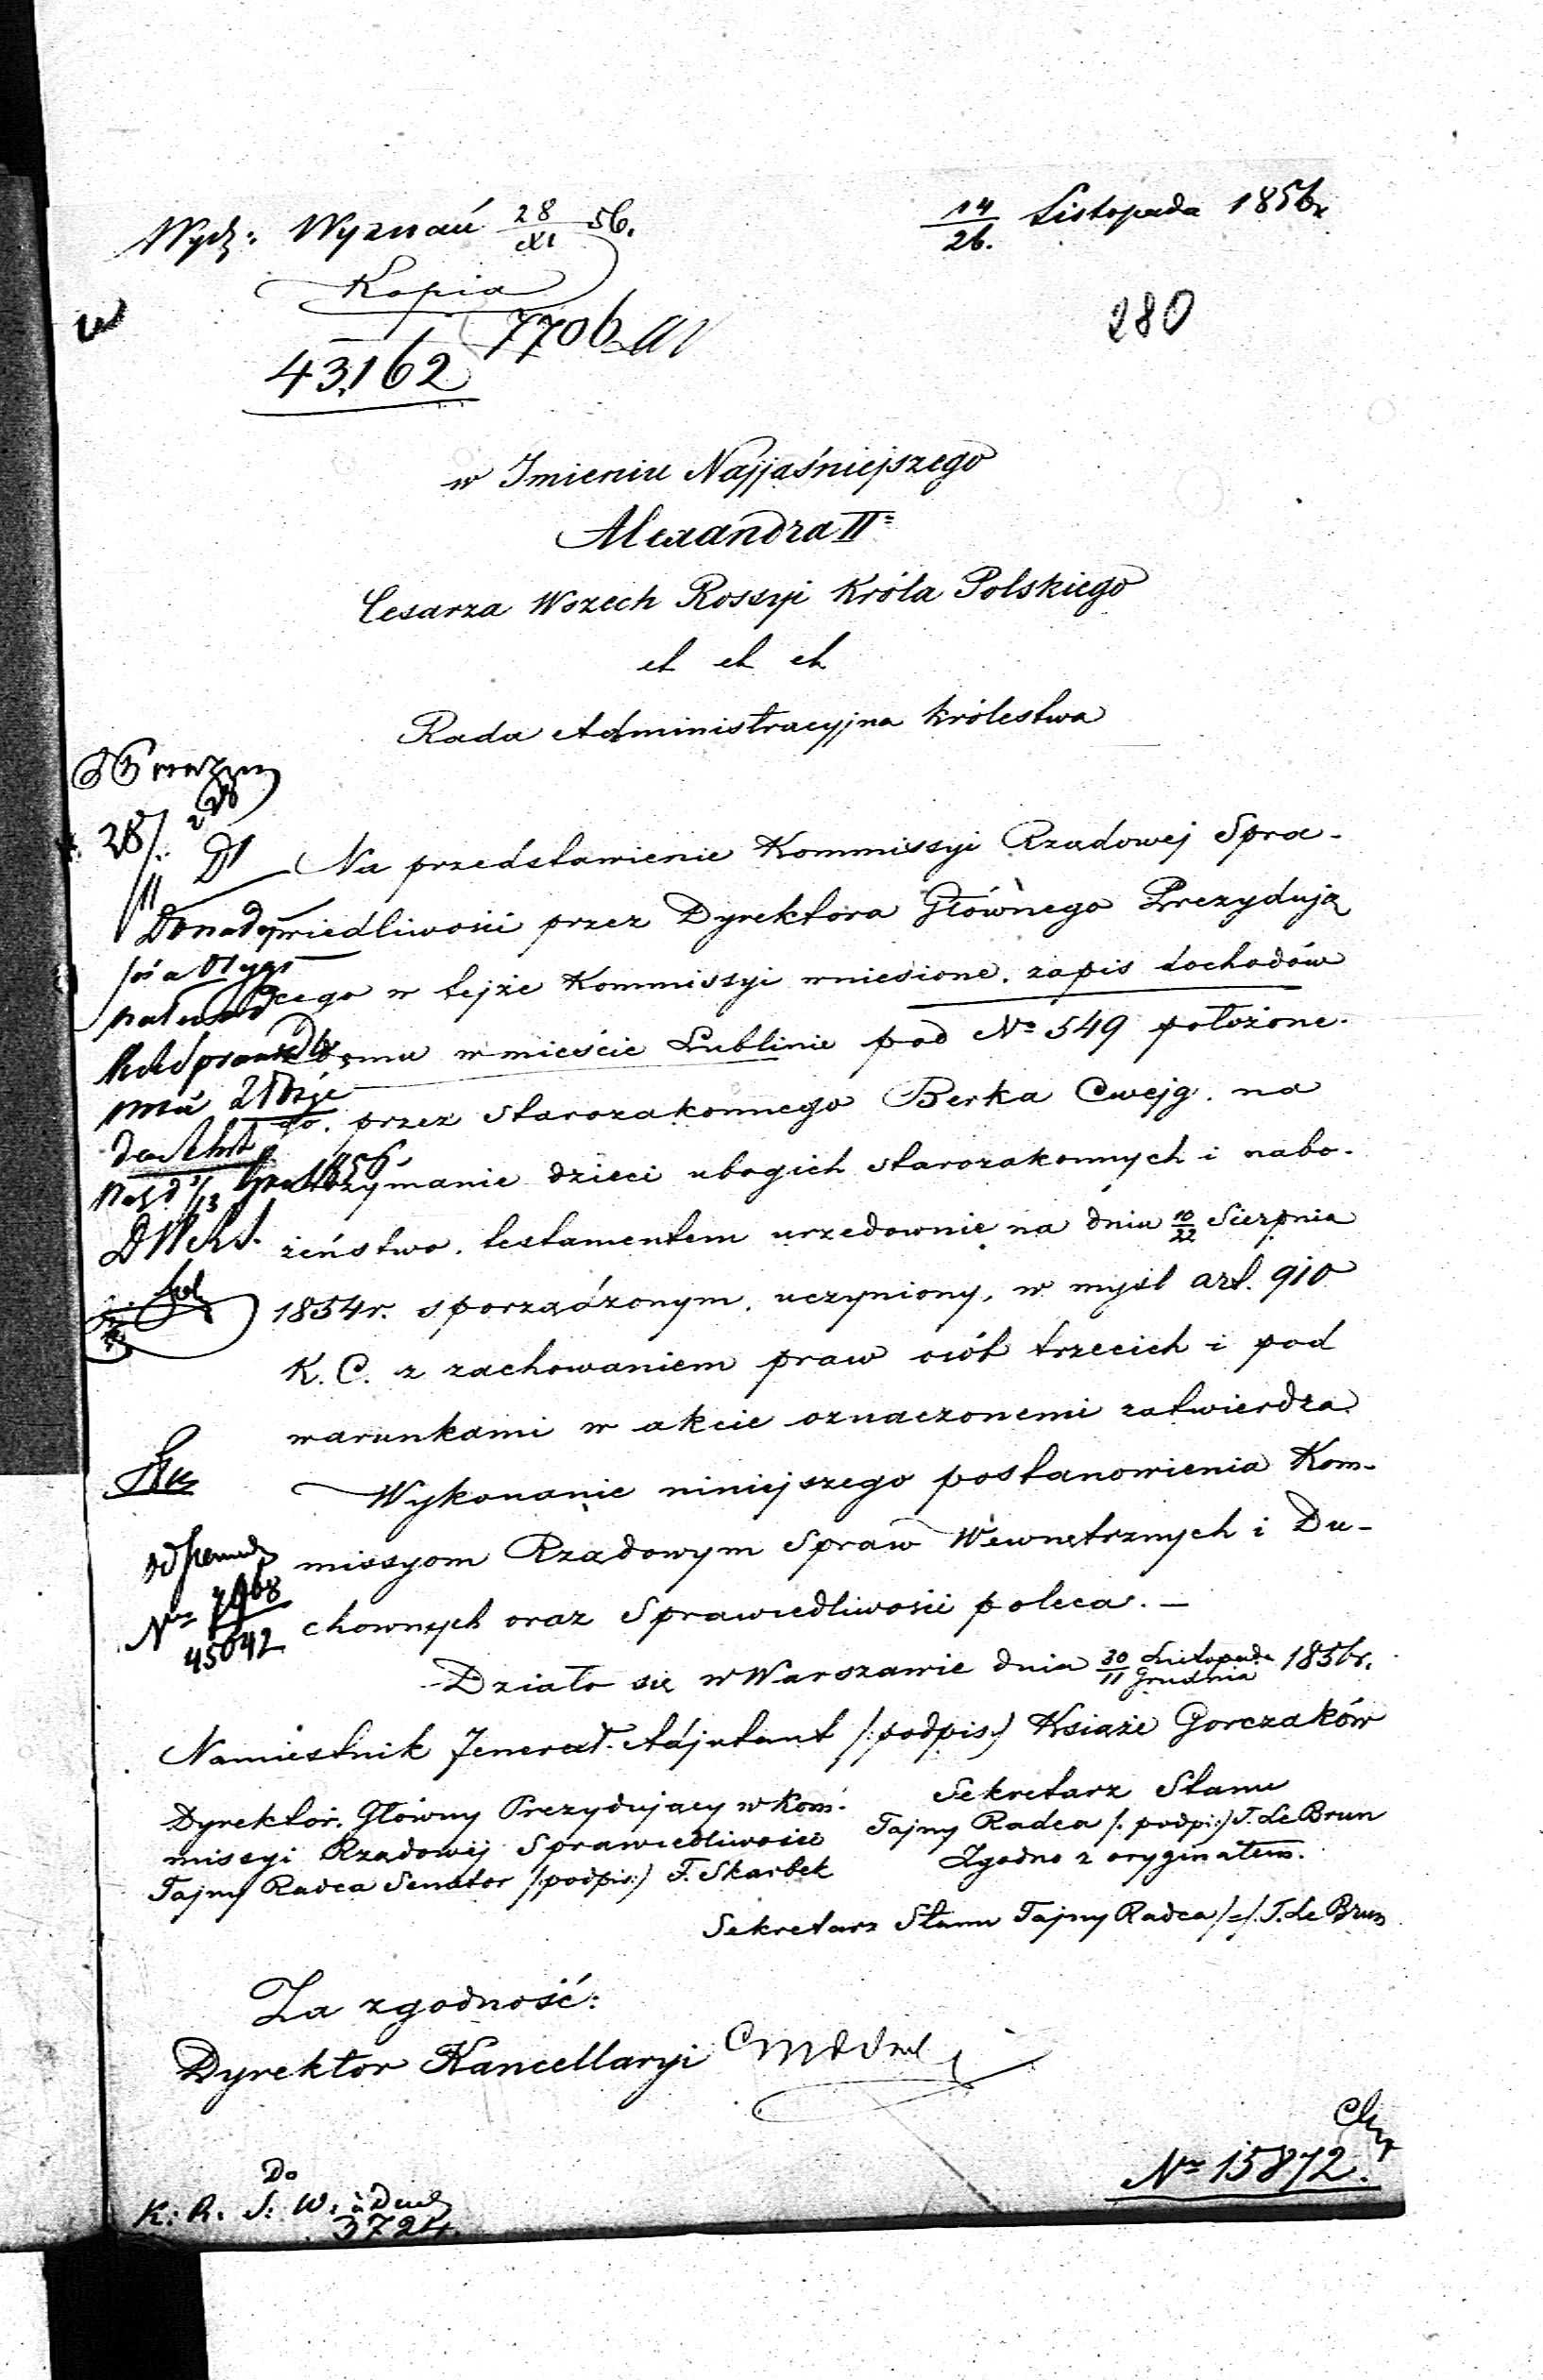 Wydz: Wyznań 28/XI 56.
14/26. Listopada 1856r
Kopia
7706
280
43162
w Imieniu Najjaśniejszego
Alexandra II
Cesarza Wszech Rossyi Króla Polskiego
et et et
Rada Administracyjna Królestwa
28/11
Na przedstawienie Kommissyi Rządowej Spra-
wiedliwości przez Dyrektora Głównego Prezydują
cego w tejże Kommissyi wniesione, zapis dochodów
z domu w mieście Lublinie pod No 549 położone-
go, przez Starozakonnego Berka Cwejg, na
utrzymanie dzieci ubogich starozakonnych i nabo-
żeństwo, testamentem urzędownie na dniu 10/22 Sierpnia
1854r. sporządzonym, uczyniony, w myśl art. 910
K. C. z zachowaniem praw osób trzecich i pod
warunkami w akcie oznaczonemi zatwierdza
Wykonanie niniejszego postanowienia Kom-
missyom Rządowym Spraw Wewnętrznych i Du-
chownych oraz Sprawiedliwości poleca. —
No 7968
45042
Działo się w Warszawie dnia 30 Listopada/11 Grudnia 1856r.
Namiestnik Jenerał-Adjutant /:podpis:/ Książe Gorczaków
Dyrektor Główny Prezydujący w Kom-
missyi Rządowej Sprawiedliwości
Tajny Radca Senator /:podpis:/ F. Skarbek
Sekretarz Stanu
Tajny Radca /:podpis:/ J. Le Brun
Zgodno z oryginałem.
Sekretarz Stanu Tajny Radca /=/ J. Le Brun
Za zgodność:
Dyrektor Kancellaryi
No 15872.
Do
K: R. S: W. i Duch
3724